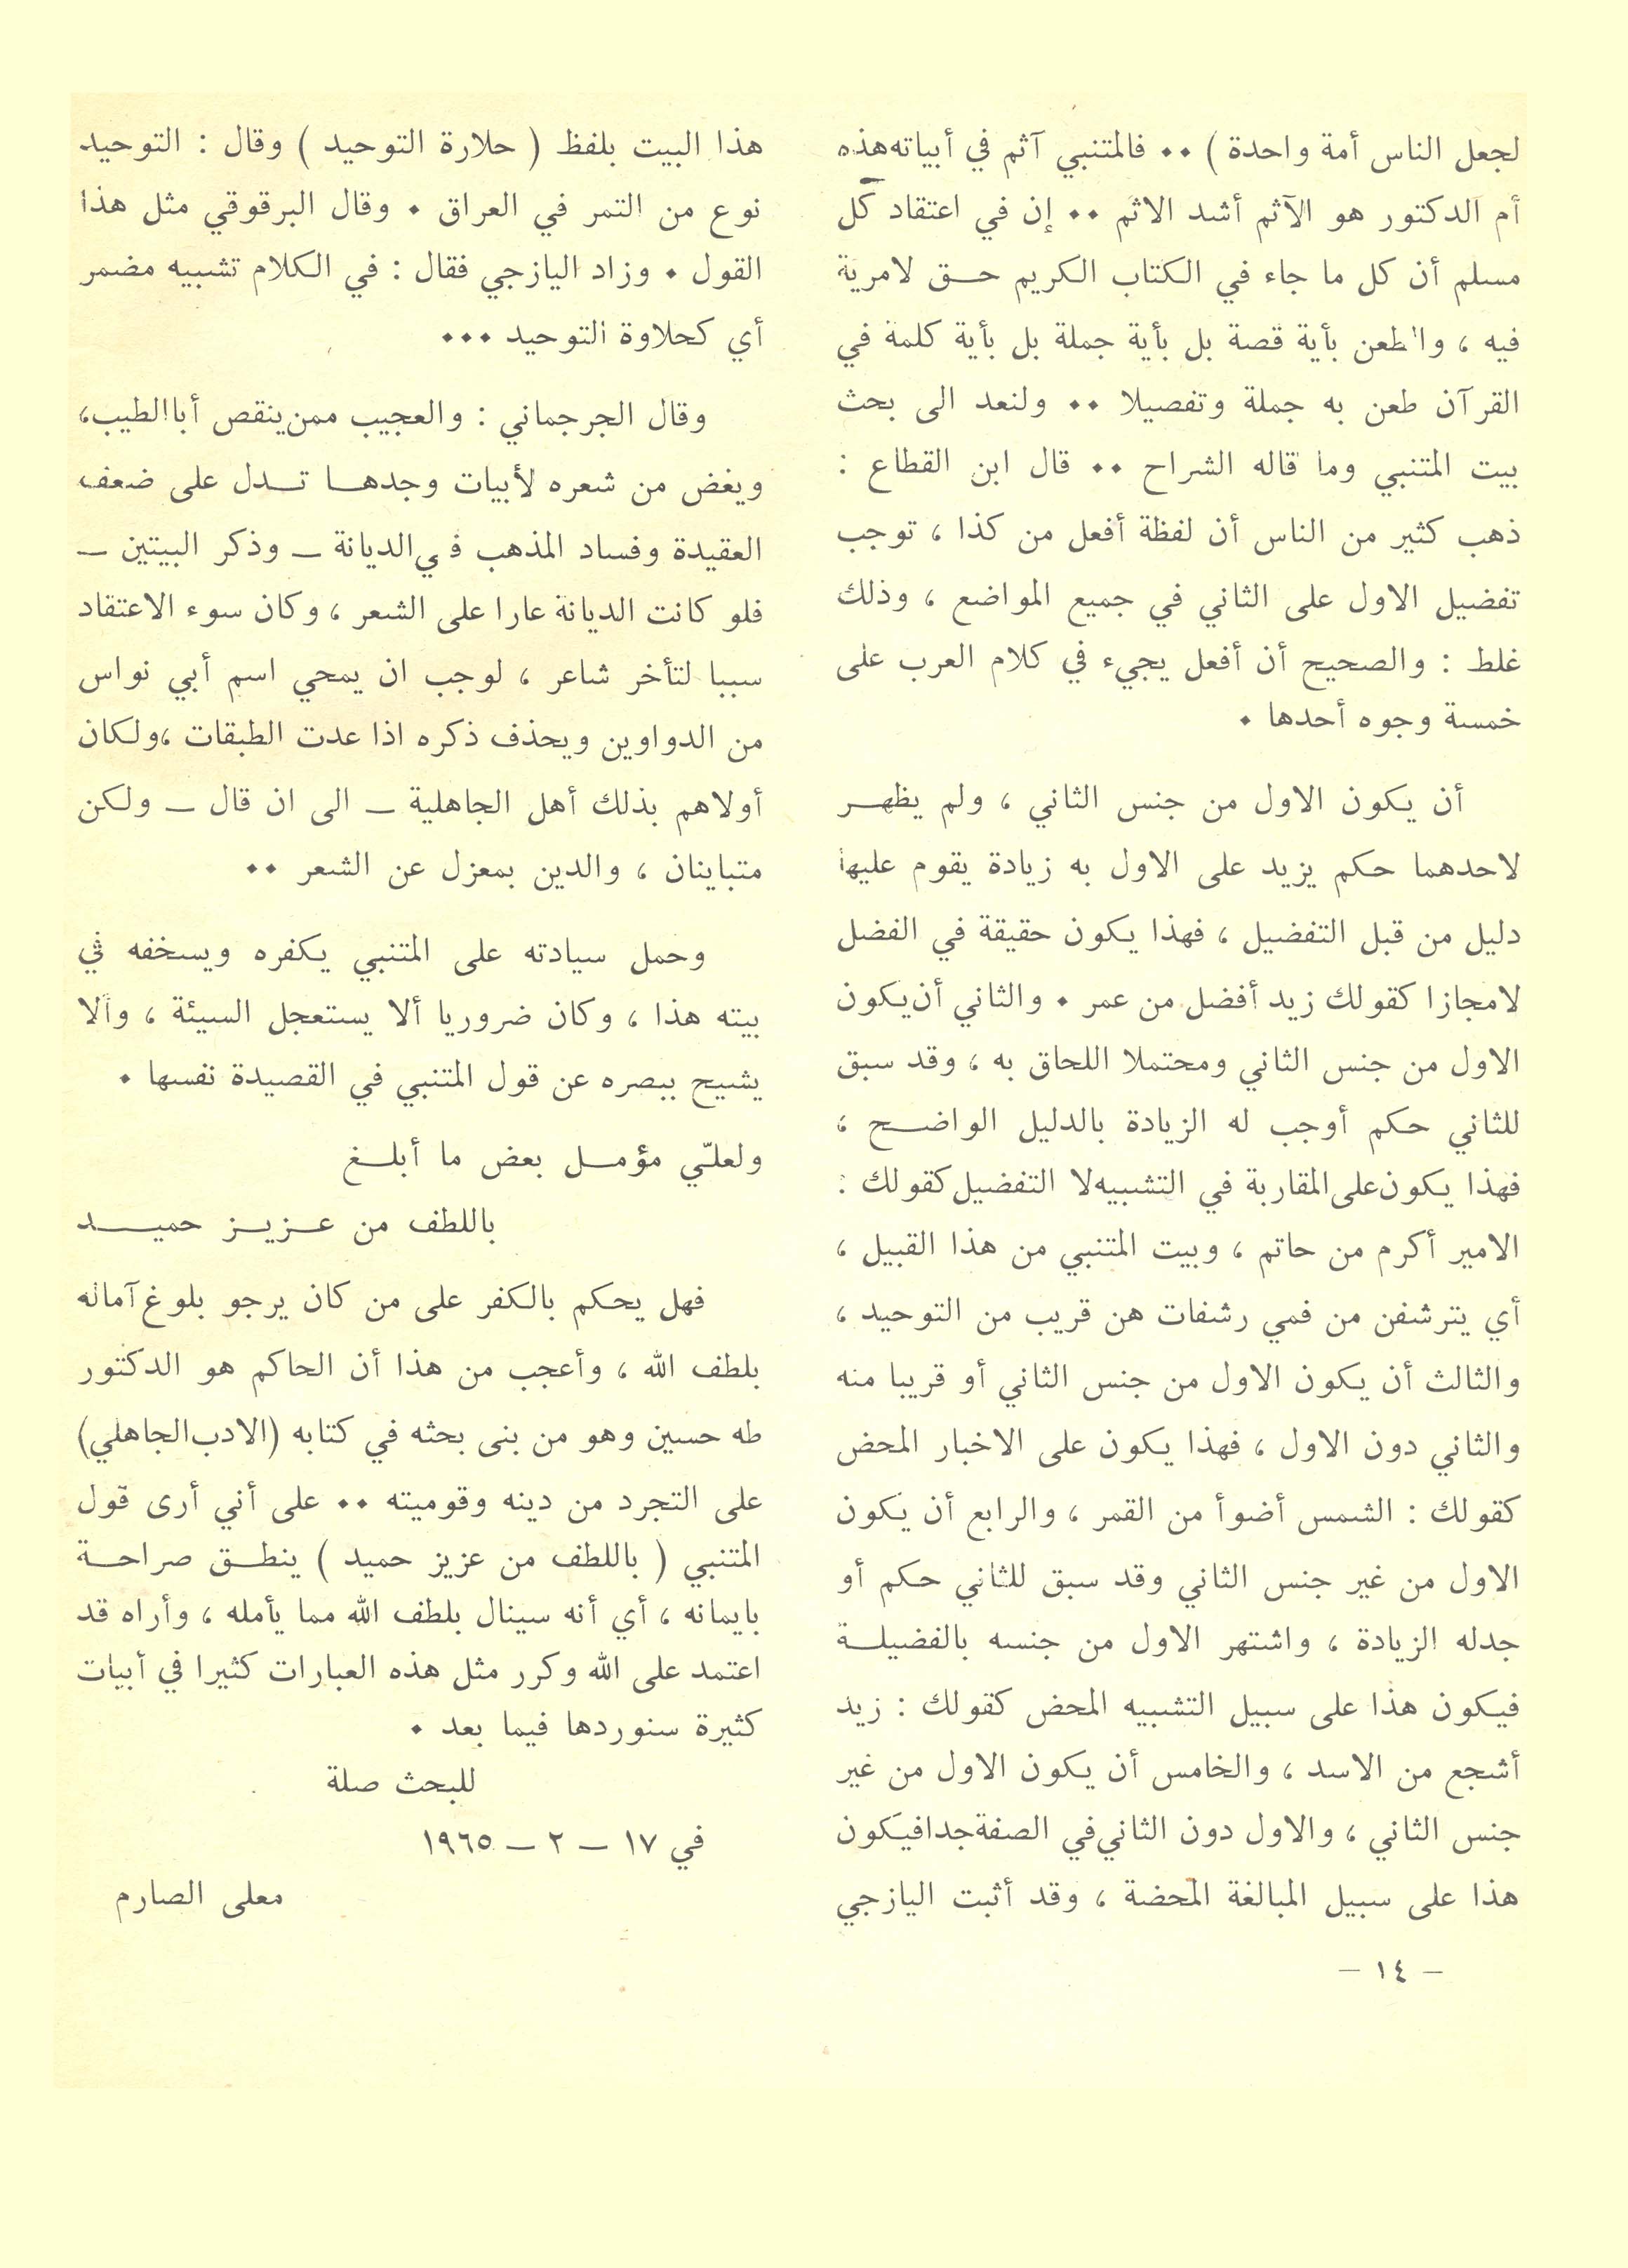 لجعل الناس أمة واحدة ) ٠٠ فالمتنبي آثم في أبياته هذه
أم الدكتور هو الآثم أشد الاثم ٠٠ إن في اعتقاد كل
مسلم أن كل ما جاء في الكتاب الكريم حق لامرية
فيه ، والطعن بأية قصة بل بأية جملة بل بأية كلمة في
القرآن طعن به جملة وتفصيلا ٠٠ ولنعد الى بحث
بيت المتنبي وما قاله الشراح ٠٠ قال ابن القطاع :
ذهب كثير من الناس أن لفظة أفعل من كذا ، توجب
تفضيل الاول على الثاني في جميع المواضع ، وذلك
غلط : والصحيح أن أفعل يجيء في كلام العرب على
خمسة وجوه أحدها ٠
أن يكون الاول من جنس الثاني ، ولم يظهر
لاحدهما حكم يزيد على الاول به زيادة يقوم عليها
دليل من قبل التفضيل ، فهذا يكون حقيقة في الفضل
لامجازا كقولك زيد أفضل من عمر ٠ والثاني أن يكون
الاول من جنس الثاني ومحتملا اللحاق به ، وقد سبق
للثاني حكم أوجب له الزيادة بالدليل الواضح ،
فهذا يكون على المقاربة في التشبيه لا التفضيل كقولك :
الامير أكرم من حاتم ، وبيت المتنبي من هذا القبيل ،
أي يترشفن من فمي رشفات هن قريب من التوحيد ،
والثالث أن يكون الاول من جنس الثاني أو قريبا منه
والثاني دون الاول ، فهذا يكون على الاخبار المحض
كقولك : الشمس أضوأ من القمر ، والرابع أن يكون
الاول من غير جنس الثاني وقد سبق للثاني حكم أو
جدله الزيادة ، واشتهر الاول من جنسه بالفضيلة
فيكون هذا على سبيل التشبيه المحض كقولك : زيد
أشجع من الاسد ، والخامس أن يكون الاول من غير
جنس الثاني ، والاول دون الثاني في الصفة جدا فيكون
هذا على سبيل المبالغة المحضة ، وقد أثبت اليازجي
هذا البيت بلفظ ( حلارة التوحيد ) وقال : التوحيد
نوع من التمر في العراق ٠ وقال البرقوقي مثل هذا
القول ٠ وزاد اليازجي فقال : في الكلام تشبيه مضمر
أي كحلاوة التوحيد ٠٠٠
وقال الجرجماني : والعجيب ممن ينقص أبا الطيب ،
ويغض من شعره لأبيات وجدها تدل على ضعف
العقيدة وفساد المذهب في الديانة ــ وذكر البيتين ــ
فلو كانت الديانة عارا على الشعر ، وكان سوء الاعتقاد
سببا لتأخر شاعر ، لوجب ان يمحي اسم أبي نواس
من الدواوين ويحذف ذكره اذا عدت الطبقات ، ولكان
أولاهم بذلك أهل الجاهلية ــ الى ان قال ــ ولكن
متباينان ، والدين بمعزل عن الشعر ٠٠
وحمل سيادته على المتنبي يكفره ويسخفه في
بيته هذا ، وكان ضروريا ألا يستعجل السيئة ، وألا
يشيح ببصره عن قول المتنبي في القصيدة نفسها ٠
ولعلّي مؤمل بعض ما أبلغ
باللطف من عزيز حميد
فهل يحكم بالكفر على من كان يرجو بلوغ آماله
بلطف الله ، وأعجب من هذا أن الحاكم هو الدكتور
طه حسين وهو من بنى بحثه في كتابه (الادب الجاهلي)
على التجرد من دينه وقوميته ٠٠ على أني أرى قول
المتنبي ( باللطف من عزيز حميد ) ينطق صراحة
بايمانه ، أي أنه سينال بلطف الله مما يأمله ، وأراه قد
اعتمد على الله وكرر مثل هذه العبارات كثيرا في أبيات
كثيرة سنوردها فيما بعد ٠
للبحث صلة
في ١٧ ــ ٢ ــ ١٩٦٥
معلى الصارم
– ١٤ –